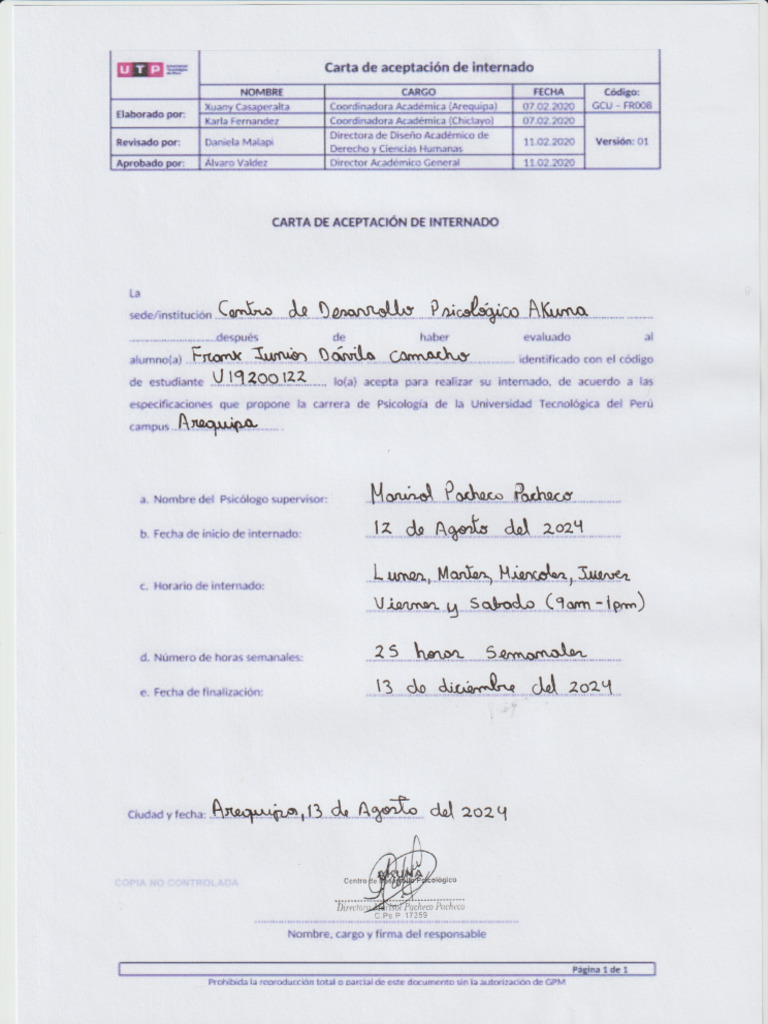 UTP Universidad Tecnológica del Perú
Carta de aceptación de internado
NOMBRE CARGO FECHA Código:
GCU - FR008
Elaborado por: Xuany Casaperalta Coordinadora Académica (Arequipa) 07.02.2020
Karla Fernandez Coordinadora Académica (Chiclayo) 07.02.2020
Revisado por: Daniela Malapi Directora de Diseño Académico de
Derecho y Ciencias Humanas 11.02.2020 Versión: 01
Aprobado por: Álvaro Valdez Director Académico General 11.02.2020
CARTA DE ACEPTACIÓN DE INTERNADO
La
sede/institución Centro de Desarrollo Psicológico Akuna
después de haber evaluado al
alumno(a) Frank Junior Dávila Camacho identificado con el código
de estudiante U19200122, lo(a) acepta para realizar su internado, de acuerdo a las
especificaciones que propone la carrera de Psicología de la Universidad Tecnológica del Perú
campus Arequipa.
a. Nombre del Psicólogo supervisor: Marisol Pacheco Pacheco
b. Fecha de inicio de internado: 12 de Agosto del 2024
c. Horario de internado: Lunes, Martes, Miercoles, Jueves
Viernes y Sabado (9am-1pm)
d. Número de horas semanales: 25 horas Semanales
e. Fecha de finalización: 13 de diciembre del 2024
Ciudad y fecha: Arequipa, 13 de Agosto del 2024
COPIA NO CONTROLADA
AKUNA
Centro de Desarrollo Psicológico
Directora Marisol Pacheco Pacheco
C.Ps.P. 17259
Nombre, cargo y firma del responsable
Página 1 de 1
Prohibida la reproducción total o parcial de este documento sin la autorización de GPM